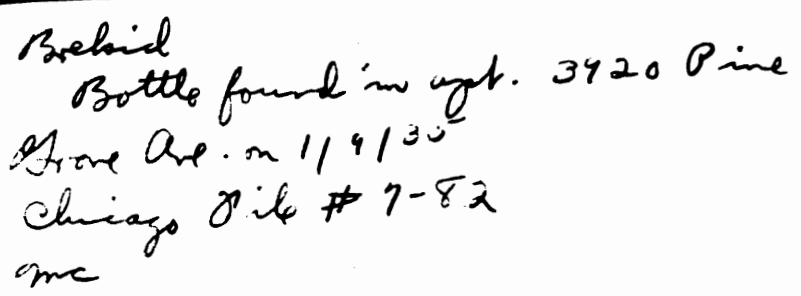 Brekid
Bottle found in apt. 3920 Pine
Grove Ave. on 1/9/35
Chicago File # 7-82
mc